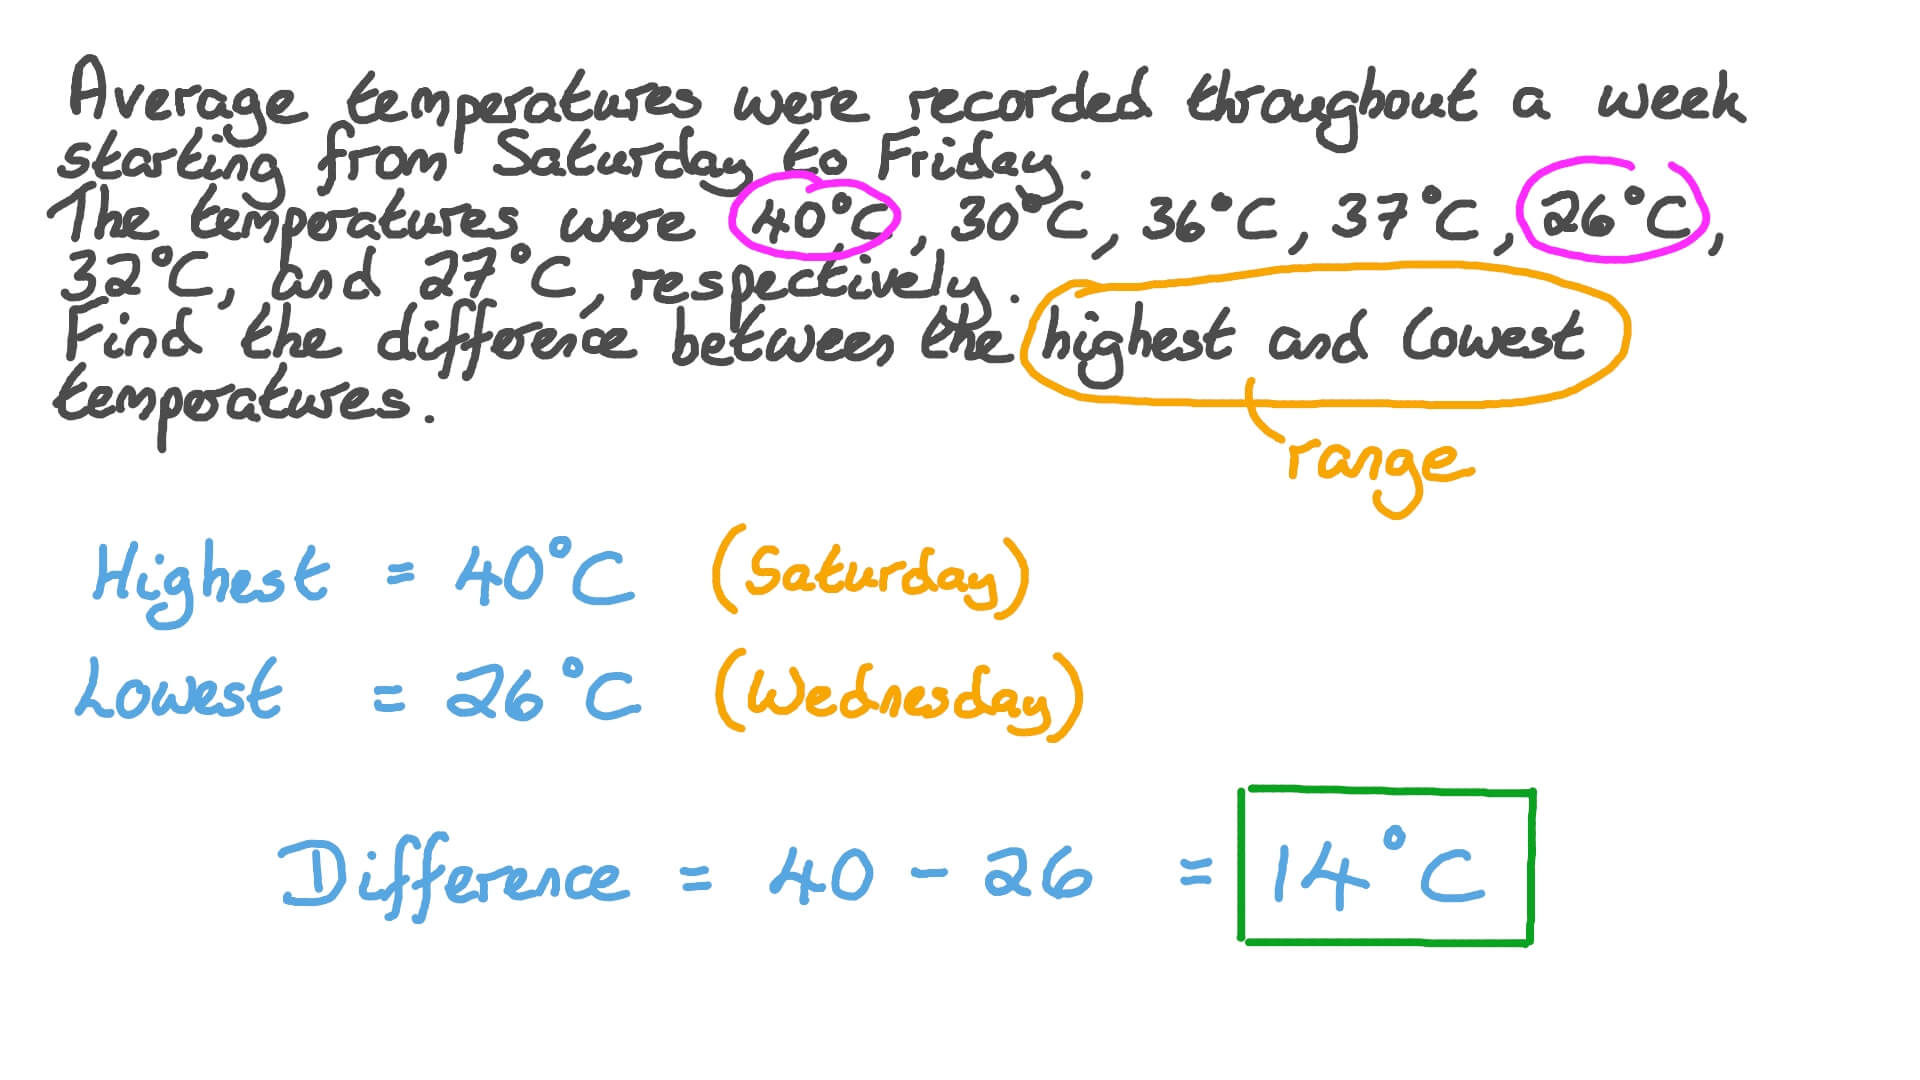 Average temperatures were recorded throughout a week
starting from Saturday to Friday.
The temperatures were 40°C, 30°C, 36°C, 37°C, 26°C,
32°C, and 27°C, respectively.
Find the difference between the highest and lowest
temperatures.
range
Highest = 40°C (Saturday)
Lowest = 26°C (Wednesday)
Difference = 40 - 26 = 14°C